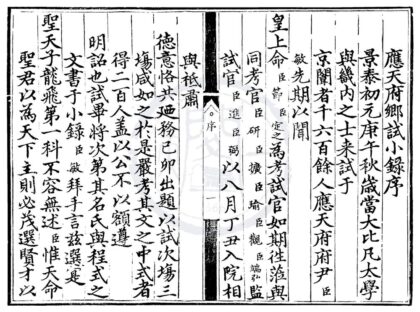 應天府鄉試小錄序
景泰初元庚午秋歲當大比凡太學
與畿內之士來試于
京闈者千六百餘人應天府府尹臣
敏先期以聞
皇上命臣節臣定之為考試官如期往涖與
同考官臣研臣擴臣瑜臣觀臣監
試官臣進臣弼以八月丁丑入院相
序
一
與祗肅
德意恪共迺務己卯出題以試次場三
場咸如之於是嚴考其文之中式者
得二百人蓋以公不以額遵
明詔也試畢將次第其名氏與程式之
文書于小錄臣敏拜手言茲選是
聖天子龍飛第一科不容無述臣惟天命
聖君以為天下主則必茂選賢才以